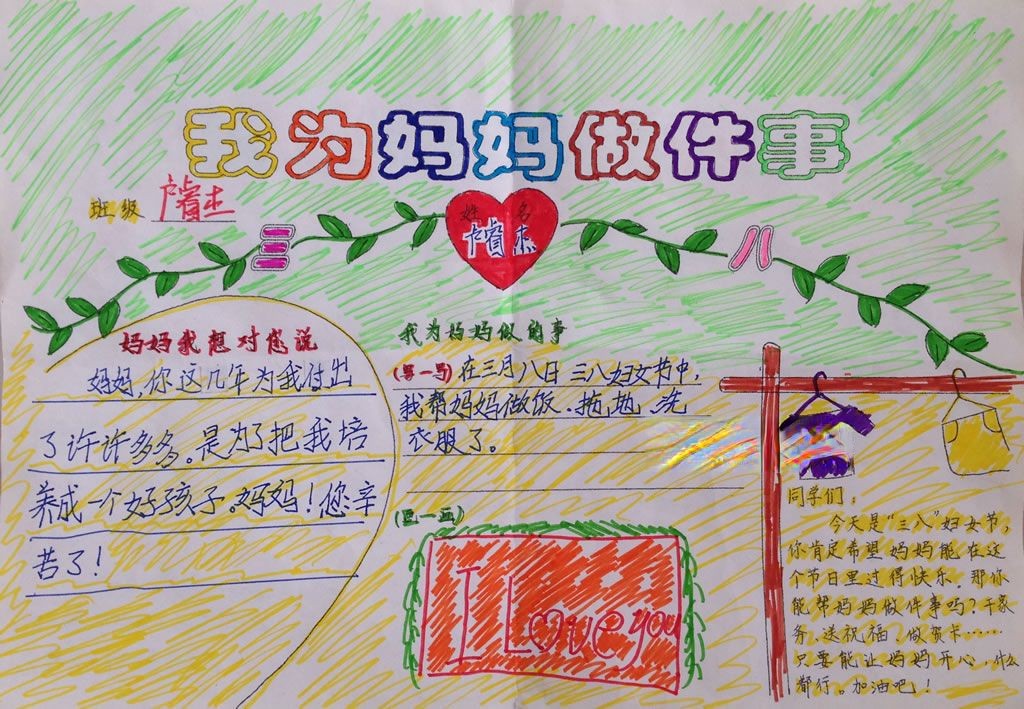 我为妈妈做件事
班级 卢睿杰
姓名
卢睿杰
三八
妈妈我想对您说
妈妈,你这几年为我付出
了许许多多。是为了把我培
养成一个好孩子。妈妈!您辛
苦了!
我为妈妈做的事
(写一写)在三月八日三八妇女节中,
我帮妈妈做饭、拖地、洗
衣服了。
(画一画)
I Love you
同学们:
今天是“三八”妇女节,
你肯定希望妈妈能在这
个节日里过得快乐,那你
能帮妈妈做件事吗?干家
务、送祝福、做贺卡……
只要能让妈妈开心,什么
都行。加油吧!